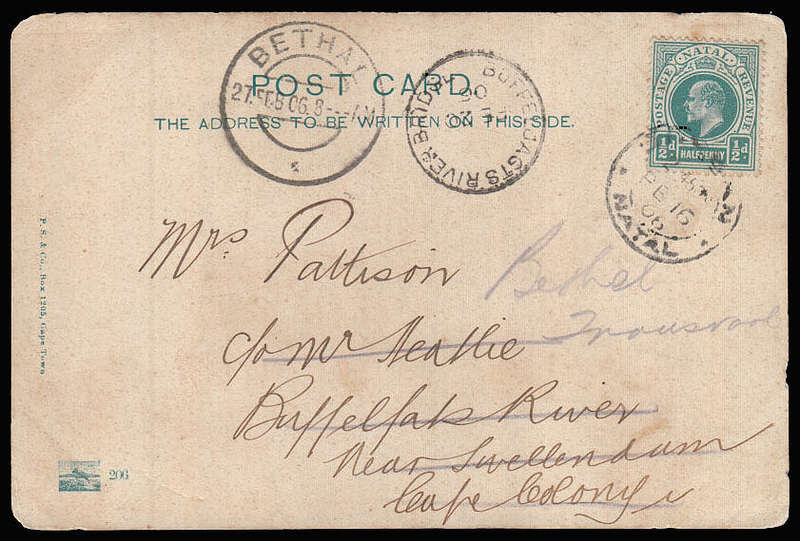 BETHAL
27. FEB 06. 8
POST CARD.
THE ADDRESS TO BE WRITTEN ON THIS SIDE.
BUFFELJAGTS RIVER BRIDGE
POSTAGE NATAL REVENUE
½d HALFPENNY ½d
FE 16
06
NATAL
Mrs Pattison
Bethel
Transvaal
c/o Mr Heatlie
Buffelfats River
Near Swellendam
Cape Colony
P. S. & Co., Box 1205, Cape Town
206